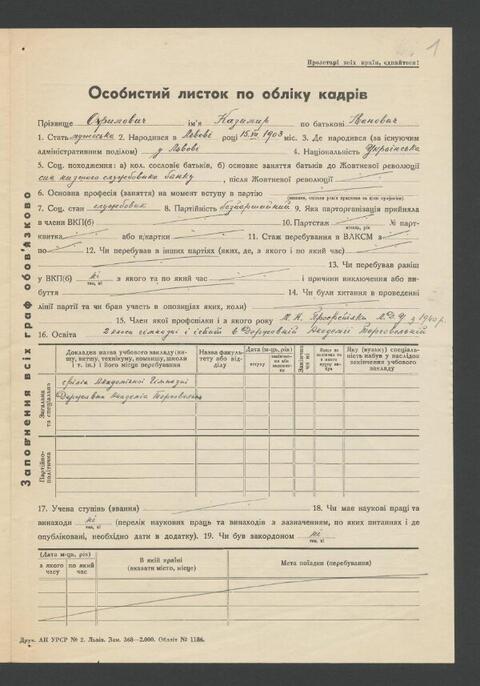 1
Пролетарі всіх країн, єднайтеся!
Особистий листок по обліку кадрів
Прізвище Охримович ім'я Казимир по батькові Іванович
1. Стать мужеська 2. Народився в Львові році 15.VII 1903 міс. 3. Де народився (за існуючим
адміністративним поділом) у Львові 4. Національність Українська
5. Соц. походження: а) кол. сословіє батьків, б) основне заняття батьків до Жовтневої революції
син низшого службовика банку, після Жовтневої революції
6. Основна професія (заняття) на момент вступу в партію
7. Соц. стан службовик 8. Партійність безпартійний 9. Яка парторганізація прийняла
в члени ВКП(б) 10. Партстаж № парт-
квитка або к/картки 11. Стаж перебування в ВЛКСМ з
по 12. Чи перебував в інших партіях (яких, де, з якого і по який час)
13. Чи перебував раніш
у ВКП(б) ні з якого та по який час і причини виключення або ви-
буття 14. Чи були хитання в проведенні
лінії партії та чи брав участь в опозиціях, яких, коли)
15. Член якої профспілки і з якого року з 1940 р.
16. Освіта 2 класи гімназії і іспит в Державній Академії Торговельній
Заповнення всіх граф обов'язково
Докладна назва учбового закладу (ви-
шу, втишу, технікуму, комвишу, школи
і т. ін.) і його місце перебування
Назва факуль-
тету або від-
ділу
Дата (м-ць, рік)
вступу
Яку (вузьку) спеціаль-
ність набув у наслідок
закінчення учбового
закладу
Загальна
та спеціальна
філія Академічної Гімназії
Державна Академія Торговельна
Партійно-
політична
17. Учена ступінь (звання) 18. Чи має наукові праці та
винаходи ні (перелік наукових праць та винаходів з зазначенням, по яких питаннях і де
так, ні
опубліковані, необхідно дати в додатку). 19. Чи був закордоном ні
так, ні
(Дата м-ць, рік)
з якого
часу
по який
час
В якій країні
(вказати місто, місце)
Мета поїздки (перебування)
Друк. АН УРСР № 2. Львів. Зам. 368—2.000. Обліт № 1186.